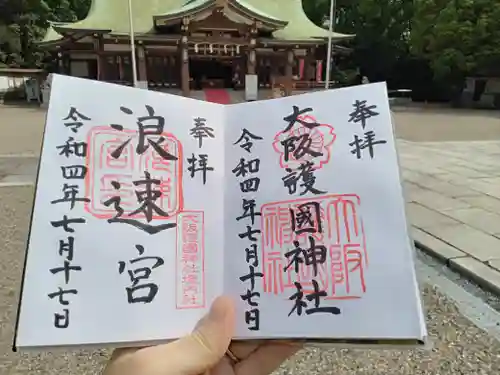 奉拝
大阪護國神社
令和四年七月十七日
奉拝
浪速宮
令和四年七月十七日